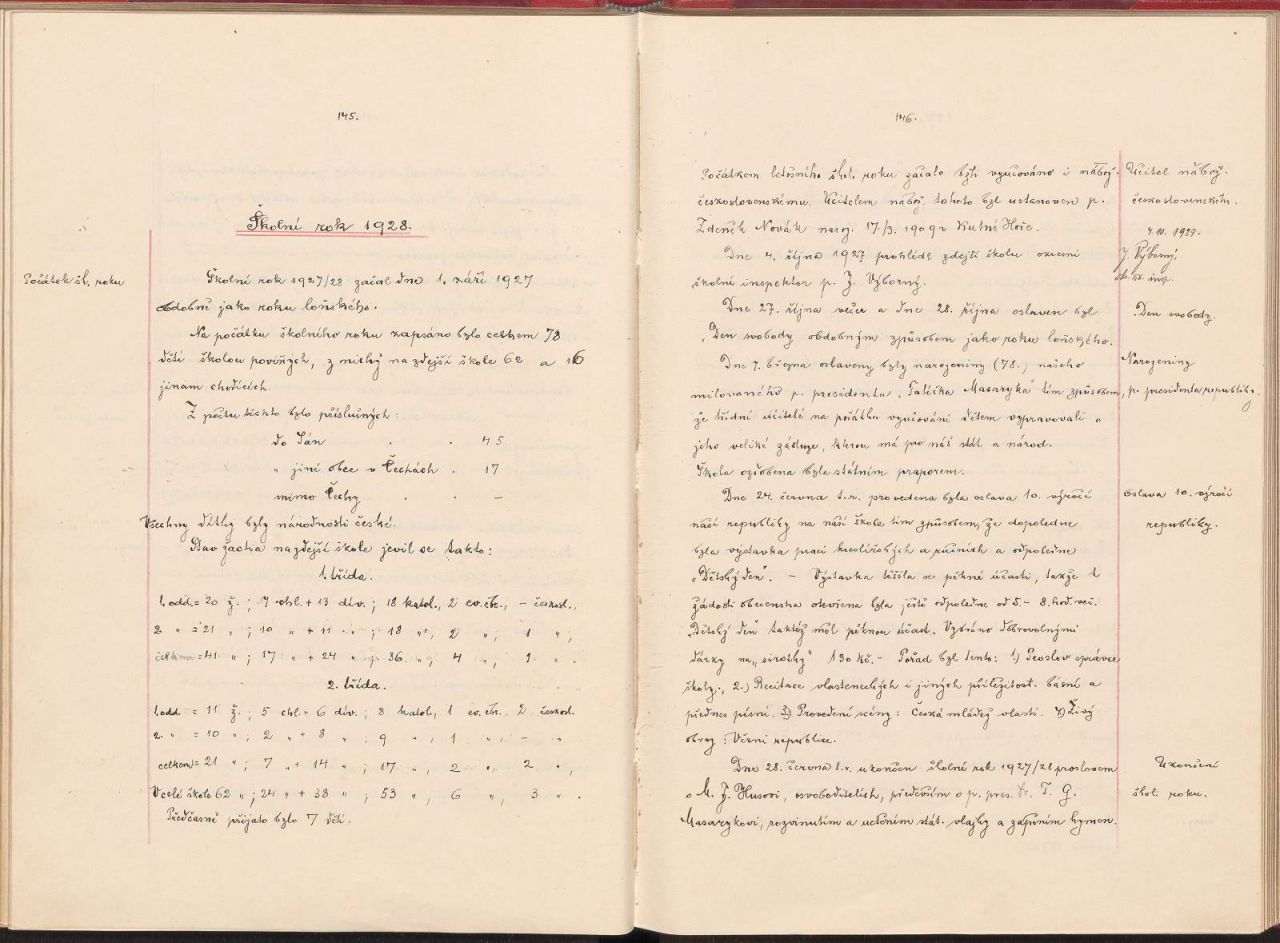 145.
Školní rok 1928.
Počátek šk. roku
Školní rok 1927/28 začal dne 1. září 1927
obdobně jako roku loňského.
Na počátku školního roku zapsáno bylo celkem 78
dětí školou povinných, z nichž na zdejší škole 62 a 16
jinam chodících.
Z počtu těchto bylo příslušných:
do Sán . . 45
„ jiné obce v Čechách . 17
mimo Čechy . . –
Všechny dítky byly národnosti české.
Stav žactva na zdejší škole jevil se takto:
1. třída.
1. odd. = 20 ž.; 7 chl. + 13 dív.; 18 katol., 2 ev. čbr., – českosl.,
2. „ = 21 „; 10 „ + 11 „; 18 „, 2 „, 1 „,
celkem = 41 „; 17 „ + 24 „; 36 „; 4 „, 1 „.
2. třída.
1. odd. = 11 ž.; 5 chl. + 6 dív.; 8 katol., 1 ev. čbr., 2 českosl.
2. „ = 10 „; 2 „ + 8 „; 9 „, 1 „, – „
celkem = 21 „; 7 „ + 14 „; 17 „, 2 „, 2 „,
V celé škole 62 „; 24 „ + 38 „; 53 „, 6 „, 3 „.
Předčasně přijato bylo 7 dětí.
146.
Počátkem letošního škol. roku začalo býti vyučováno i nábož.
československému. Učitelem nábož. tohoto byl ustanoven p.
Zdeněk Novák naroz. 17./3. 1909 v Kutné Hoře.
Učitel nábož.
československého.
Dne 4. října 1927 prohlédl zdejší školu okresní
školní inspektor p. J. Výborný.
4. 10. 1929.
J. Výborný,
ok. šk. insp.
Dne 27. října večer a dne 28. října oslaven byl
„Den svobody obdobným způsobem jako roku loňského.
Den svobody.
Dne 7. března oslaveny byly narozeniny (78.) našeho
milovaného p. presidenta „Tatíčka Masaryka“ tím způsobem,
že třídní učitelé na počátku vyučování dětem vypravovali o
jeho veliké zásluze, kterou má pro náš stát a národ.
Škola ozdobena byla státním praporem.
Narozeniny
p. presidenta republiky.
Dne 24. června t.r. provedena byla oslava 10. výročí
naší republiky na naší škole tím způsobem, že dopoledne
byla výstavka prací kreslířských a ručních a odpoledne
„Dětský den“. – Výstavka těšila se pěkné účasti, takže k
žádosti obecenstva otevřena byla ještě odpoledne od 5. – 8. hod. več.
„Dětský den“ taktéž měl pěknou účast. Vybráno dobrovolnými
dárky na „sirotky“ 130 kč. – Pořad byl tento: 1.) Proslov správce
školy., 2.) Recitace vlasteneckých i jiných příležitost. básní a
přednes písní. 3.) Provedení scény: Česká mládež vlasti. 4.) Živý
obraz: Věrni republice.
Oslava 10. výročí
republiky.
Dne 28. června t.r. ukončen školní rok 1927/28 proslovem
o M. J. Husovi, osvoboditelích, především o p. pres. Dr. T. G.
Masarykovi, rozvinutím a uctěním stát. vlajky a zapěním hymen.
Ukončení
škol. roku.